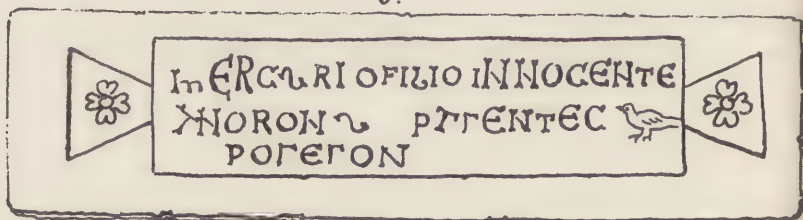 InЄRCURI OFILIO iNNOCENTE
ӾNORON ∿ PΤΓENTEC
POΓEΓON